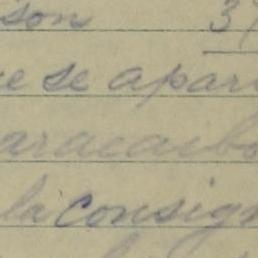 son 37
e se apar
aracaibo
la consign